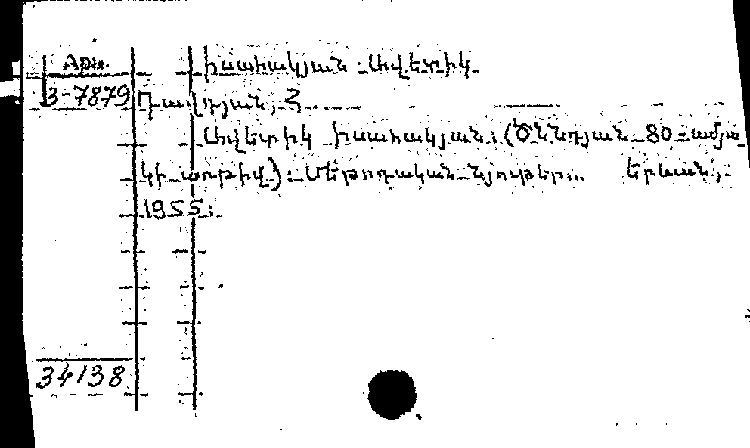 Арм. Իսահակյան Ավետիք
3-7879 Դավթյան, Հ.
Ավետիկ Իսահակյան: (Ծննդյան 80-ամյա
կի առթիվ): Մեթոդական նյութեր... Երևան,
1955:
34138